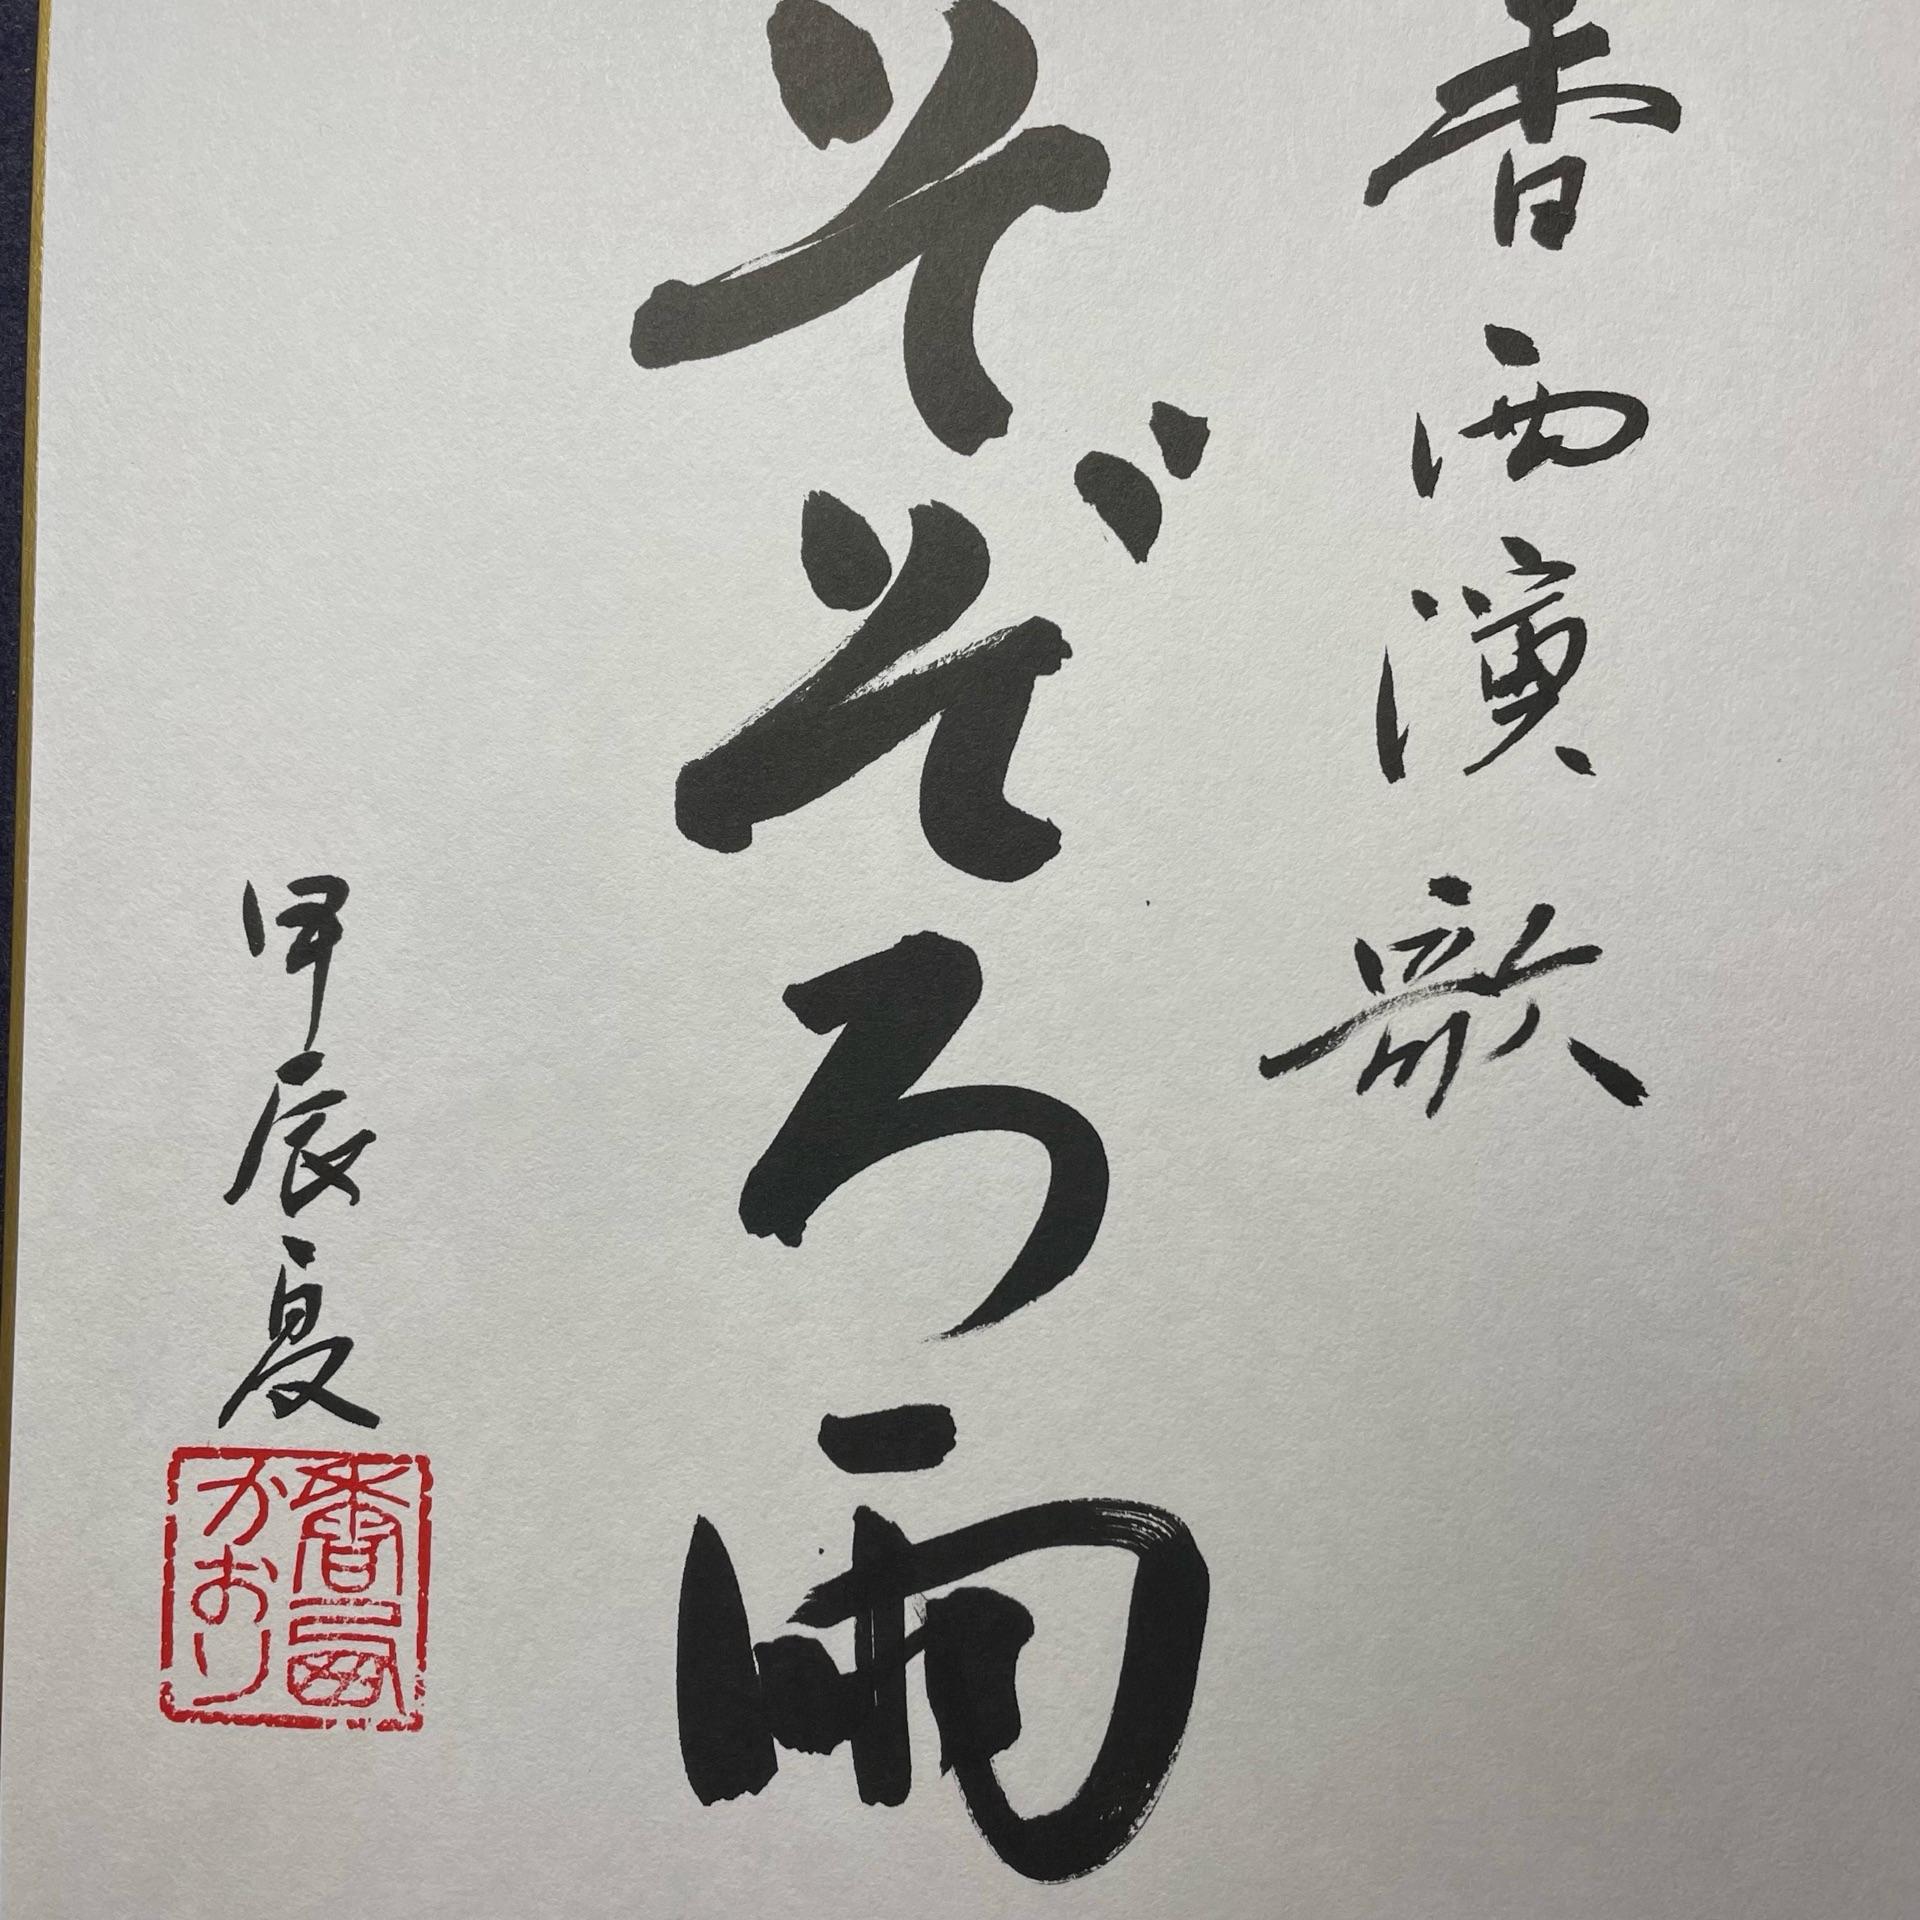 香西演歌
そぞろ雨
甲辰夏
香西
かおり